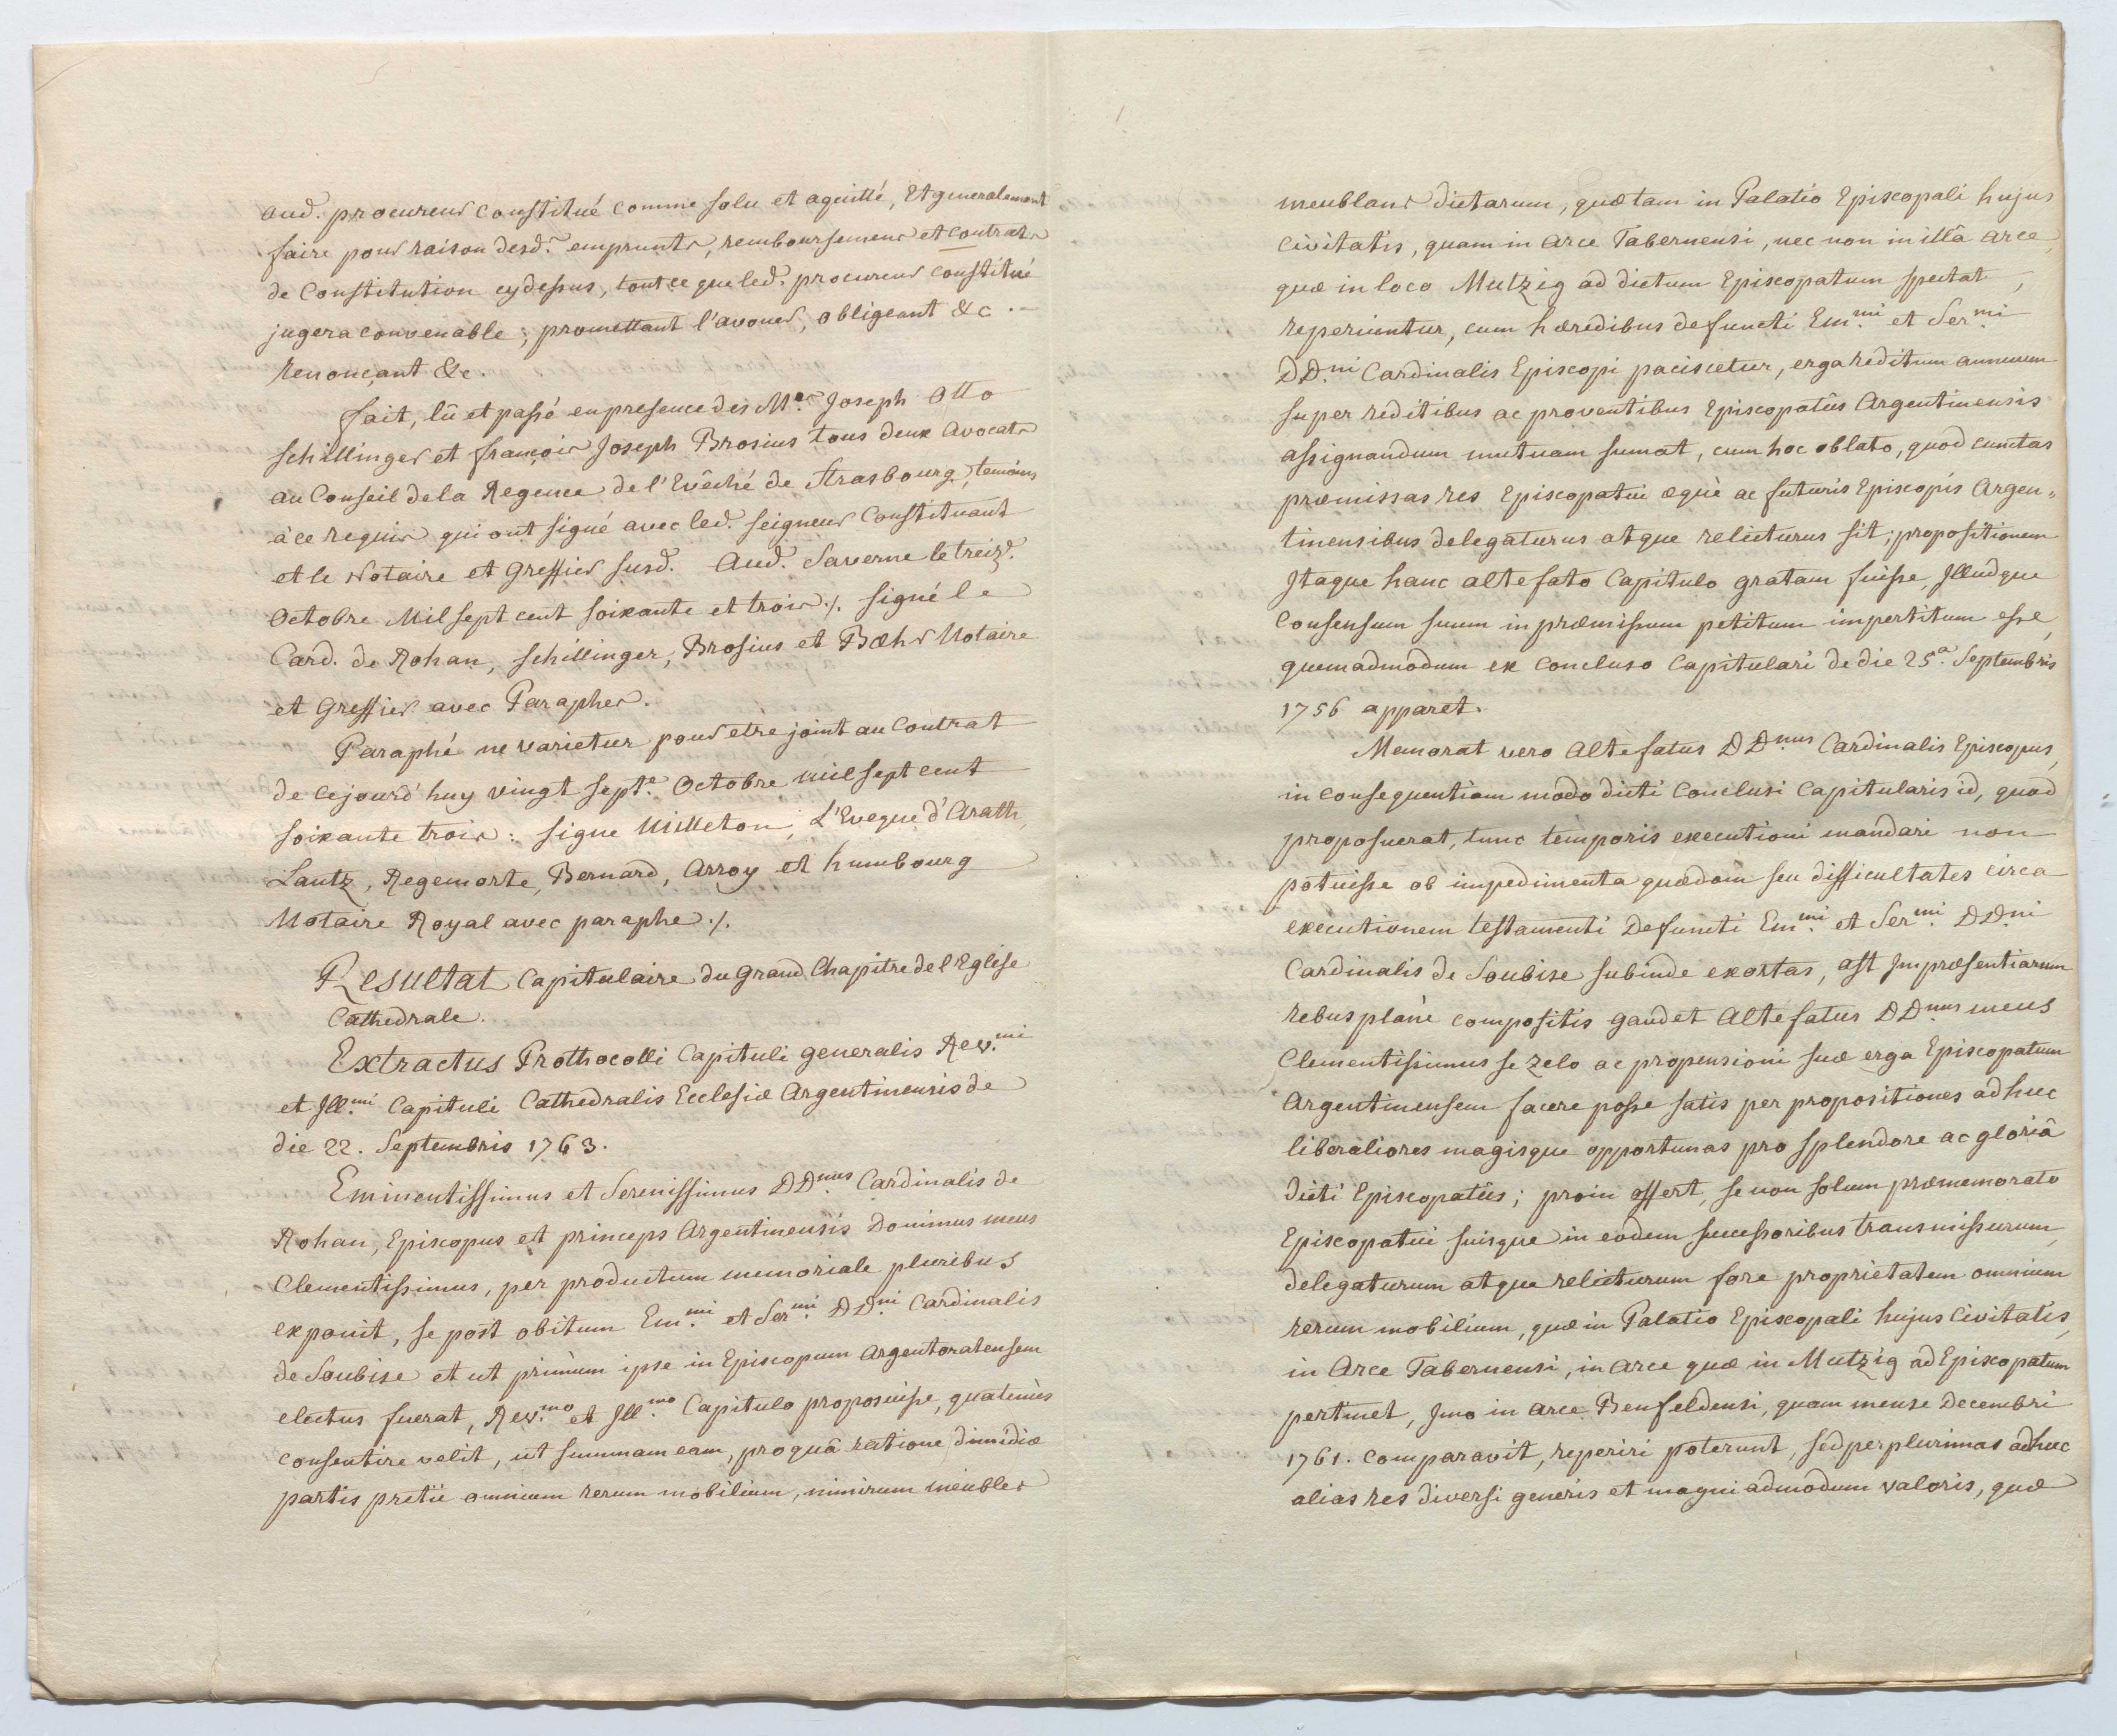 aud. procureur constitué comme solu et aquitté, Et generalement
faire pour raison desd. emprunts, remboursemens et contrats
de Constitution cydessus, tout ce que led. procureur constitué
jugera convenable; promettant l'avouer, obligeant &c.
Renonçant &c.
fait, lû et passé en presence des Mes. Joseph Otto
Schillinger et françois Joseph Brosius tous deux Avocats
au Conseil de la Regence de l'Evêché de Strasbourg, temoins
à ce requis qui ont signé avec led. seigneur Constituant
et le Notaire et Greffier susd. Aud. Saverne le treize.
Octobre Mil sept cent soixante et trois ./. signé le
Card. de Rohan, Schillinger, Brosius et Bæhr Notaire
et Greffier avec Paraphes.
Paraphé ne varietur pour etre joint au Contrat
de cejourd'huy vingt sept.e Octobre mil sept cent
soixante trois: signe Milleton, L'Eveque d'Arath,
Lantz, Regemorte, Bernard, Arroy et humbourg
Notaire Royal avec paraphe ./.
Resultat Capitulaire du Grand Chapitre de l'Eglise
Cathedrale.
Extractus Prothocolli Capituli generalis Rev.mi
et Ill.mi Capituli Cathedralis Ecclesiæ Argentinensis de
die 22. Septembris 1763.
Eminentissimus et Serenissimus DD.nus Cardinalis de
Rohan, Episcopus et princeps Argentinensis Dominus meus
Clementissimus, per productum memoriale pluribus
exponit, se post obitum Em.mi et Ser.mi DD.ni Cardinalis
de Soubise et ut primùm ipse in Episcopum Argentoratensem
electus fuerat, Rev.mo et Ill.mo Capitulo proposuisse, quatenùs
consentire velit, ut summam eam, pro quâ ratione dimidiæ
partis pretii omnium rerum mobilium, nimirum meubles
meublans dictarum, quæ tam in Palatio Episcopali hujus
civitatis, quam in Arce Tabernensi, nec non in illâ Arce,
quæ in loco Mutzig ad dictum Episcopatum spectat,
reperiuntur, cum hæredibus defuncti Em.mi et Ser.mi
DD.ni Cardinalis Episcopi paciscetur, erga reditum annuum
super reditibus ac proventibus Episcopatûs Argentinensis
assignandum mutuam sumat, cum hoc oblato, quod cunctas
præmissas res Episcopatui æquè ac futuris Episcopis Argen-
tinensibus delegaturus atque relicturus sit; propositionem
Itaque hanc altefato Capitulo gratam fuisse, Illudque
Consensum suum in præmissum petitum impertitum esse,
quemadmodum ex Concluso Capitulari de die 25.a Septembris
1756 apparet.
Memorat vero Altefatus DD.nus Cardinalis Episcopus,
in consequentiam modo dicti Conclusi Capitularis id, quod
proposuerat, tunc temporis executioni mandari non
potuisse ob impedimenta quædam seu difficultates circa
executionem testamenti Defuncti Em.mi et Ser.mi DD.ni
Cardinalis de Soubise subinde exortas, ast Impræsentiarum
rebus planè compositis gaudet Altefatus DD.nus meus
Clementissimus se zelo ac propensioni suæ erga Episcopatum
Argentinensem facere posse satis per propositiones adhuc
liberaliores magisque opportunas pro splendore ac gloriâ
dicti Episcopatûs; proin offert, se non solum præmemorato
Episcopatui suisque in eodem successoribus transmissurum,
delegaturum atque relicturum fore proprietatem omnium
rerum mobilium, quæ in Palatio Episcopali hujus Civitatis,
in Arce Tabernensi, in Arce quæ in Mutzig ad Episcopatum
pertinet, Imo in Arce Benfeldensi, quam mense Decembri
1761. comparavit, reperiri poterunt, sed perplurimas adhuc
alias res diversi generis et magni admodum valoris, quæ